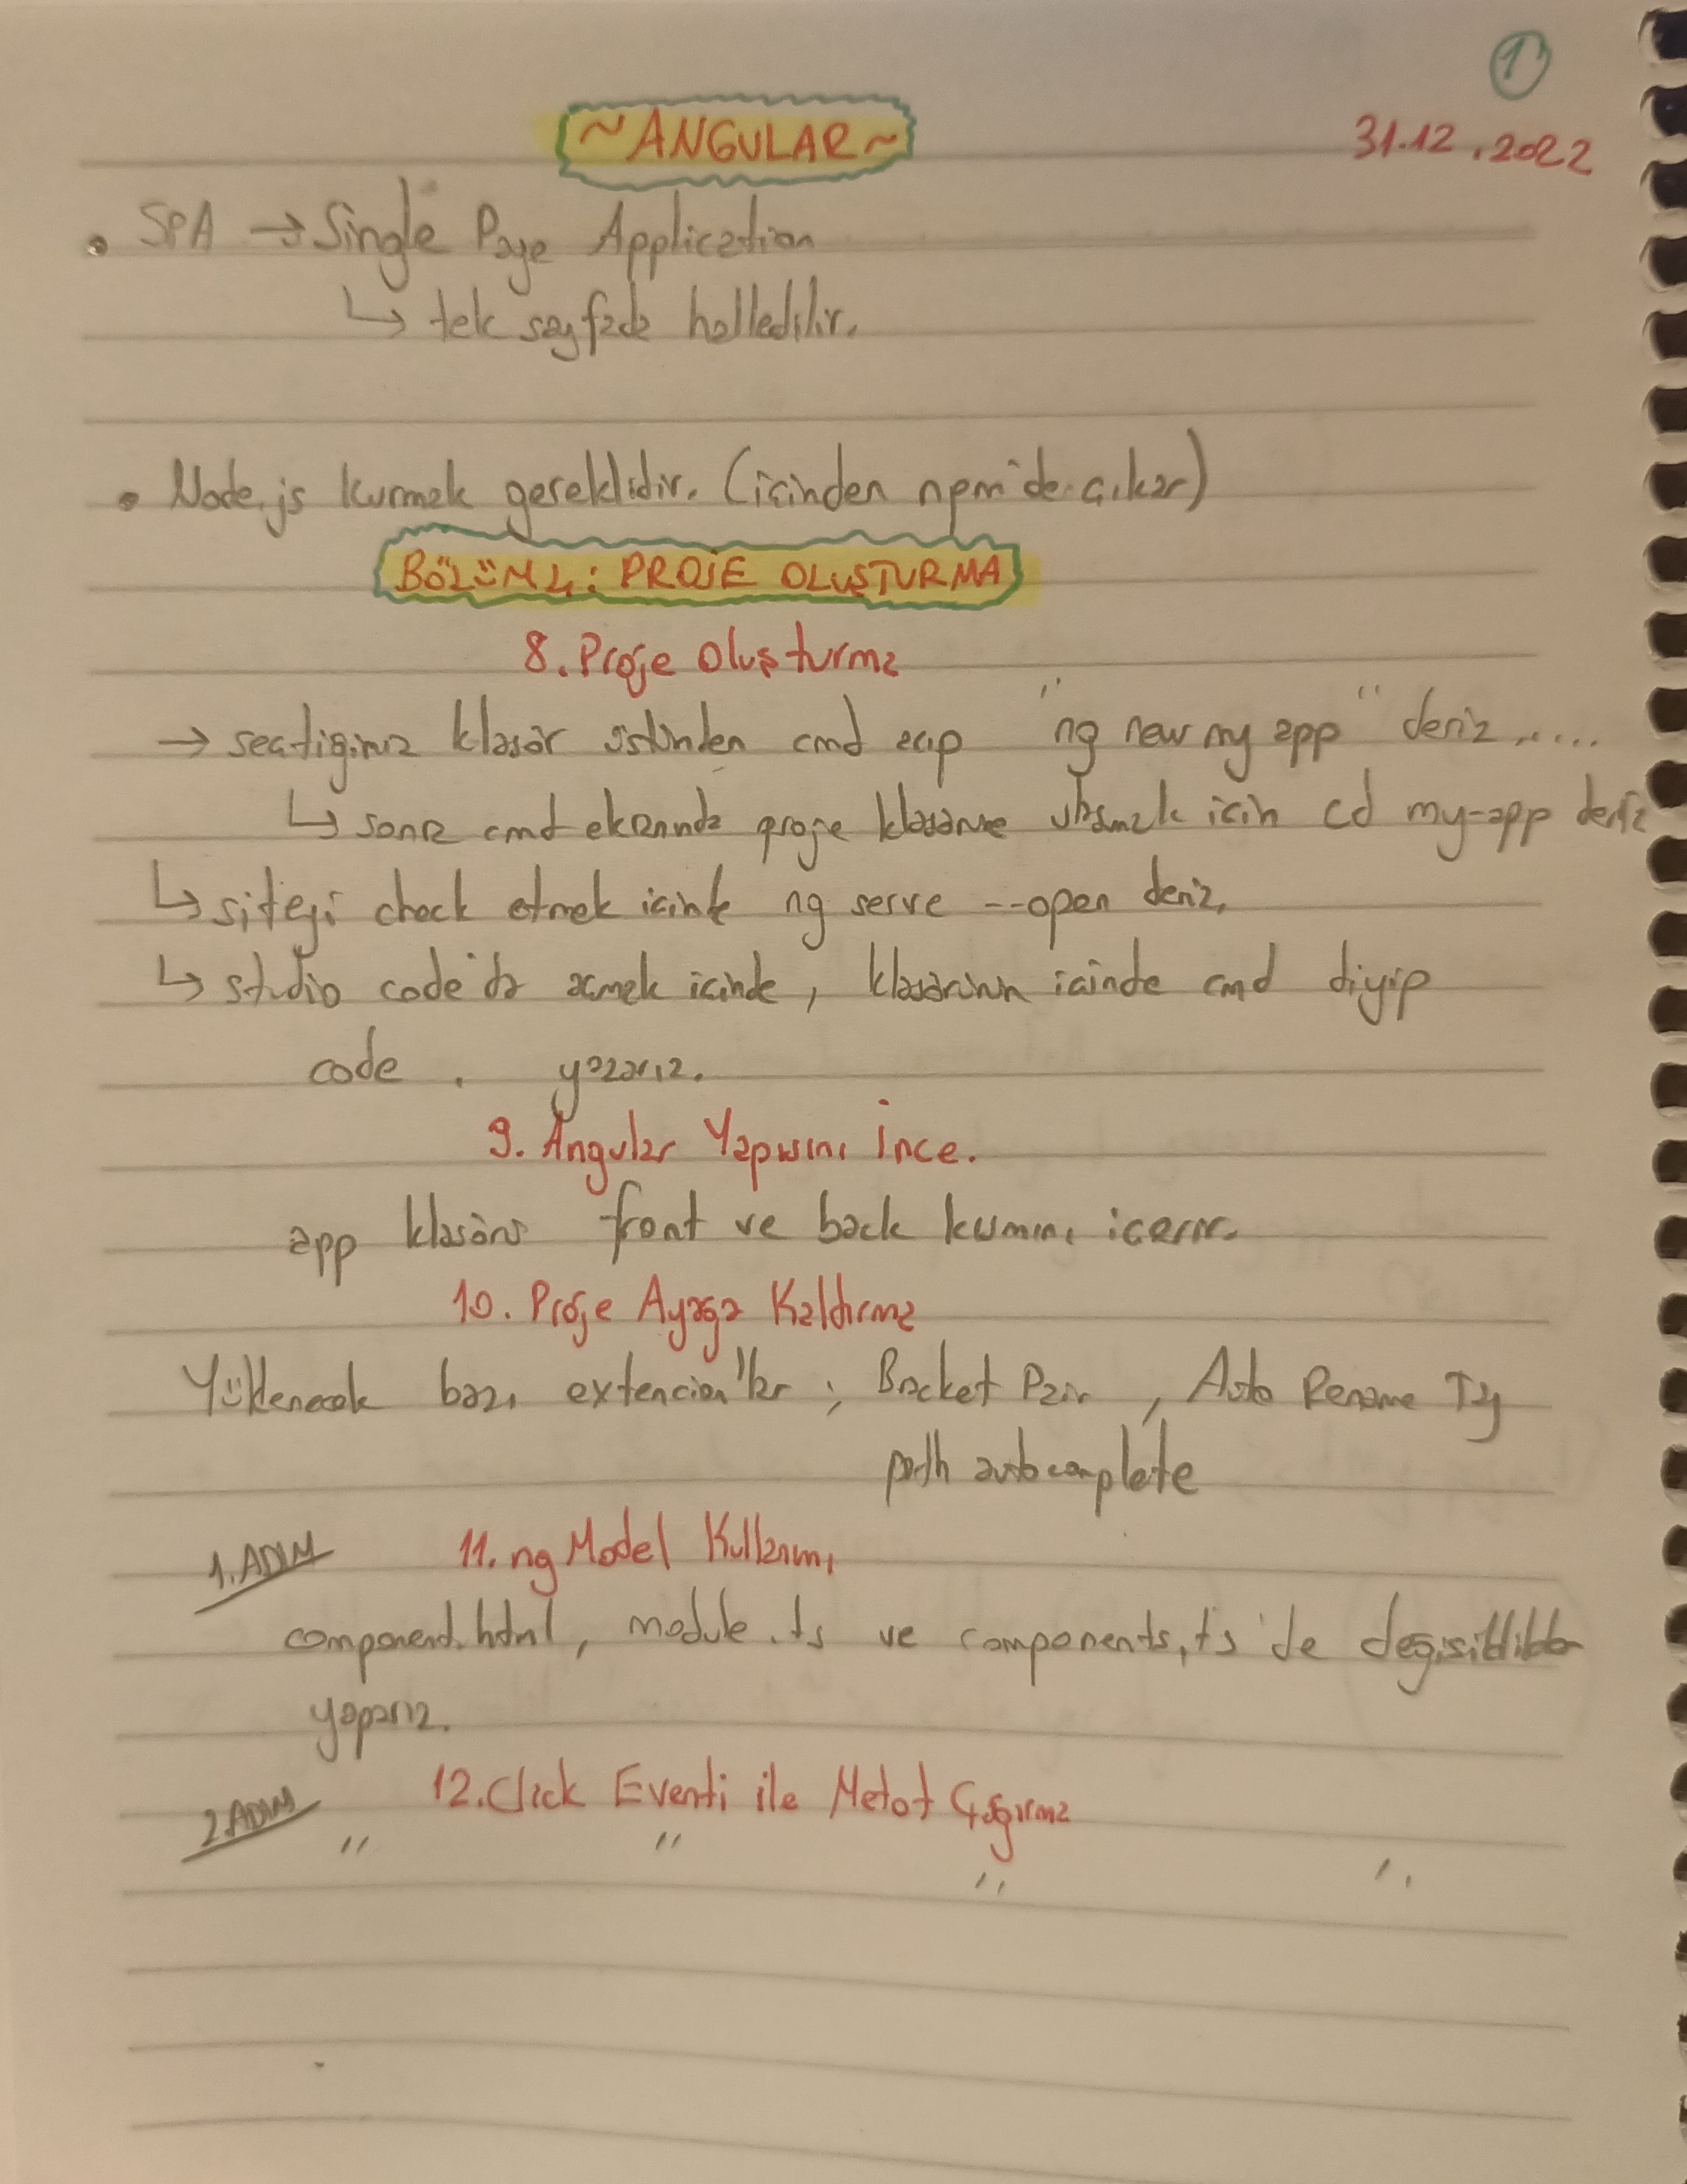 1
~ANGULAR~
31.12.2022
• SPA → Single Page Application
↳ tek sayfada halledilir.
• Node.js kurmak gereklidir. (içinden npm'de çıkar)
BÖLÜM 4: PROJE OLUŞTURMA
8. Proje Oluşturma
→ seçtiğimiz klasör üstünden cmd açıp "ng new my app" deriz.....
↳ sonra cmd ekranında proje klasörüne ulaşmak için cd my-app deriz
↳ siteyi check etmek içinde ng serve --open deriz.
↳ studio code'da açmak içinde, klasörünün içinde cmd diyip
code . yazarız.
9. Angular Yapısını İnce.
app klasörü front ve back kısmını içerir.
10. Proje Ayağa Kaldırma
Yüklenecek bazı extencion'lar ; Bracket Pair , Auto Rename Tag
path autocomplete
1.ADIM
11. ng Model Kullanımı
component.html, module.ts ve components.ts'de değişiklikler
yaparız.
2.ADIM
12. Click Eventi ile Metot Çağırma
" " " "